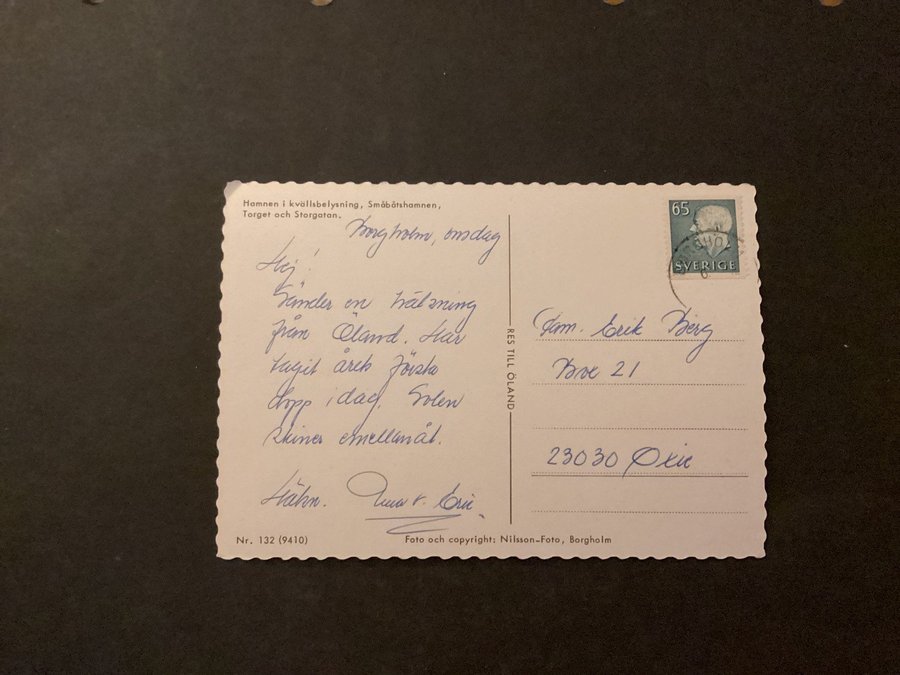 Hamnen i kvällsbelysning, Småbåtshamnen,
Torget och Storgatan.
Borgholm, onsdag
Hej!
Sänder en hälsning
från Öland. Har
tagit årets första
dopp i dag. Solen
skiner emellanåt.
Hähn.
Eric
Nr. 132 (9410)
RES TILL ÖLAND
Foto och copyright: Nilsson-Foto, Borgholm
65
SVERIGE
Fam. Erik Berg
Box 21
23030 Oxie